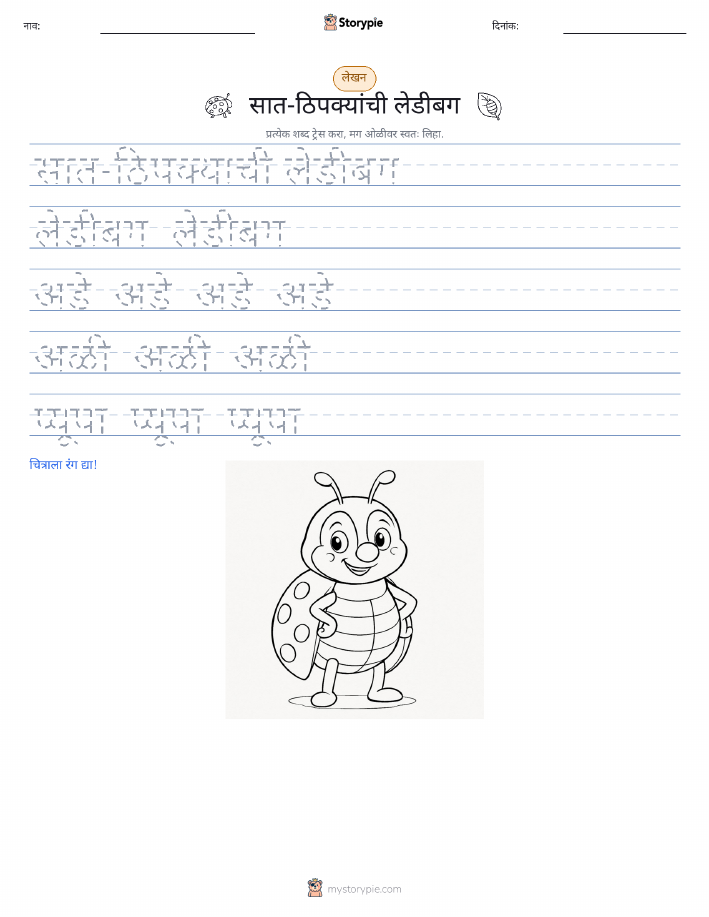 नाव:
Storypie
दिनांक:
लेखन
सात-ठिपक्यांची लेडीबग
प्रत्येक शब्द ट्रेस करा, मग ओळीवर स्वतः लिहा.
सात-ठिपक्यांची लेडीबग
लेडीबग लेडीबग
अंडे अंडे अंडे अंडे
अळी अळी अळी
प्यूपा प्यूपा प्यूपा
चित्राला रंग द्या!
mystorypie.com